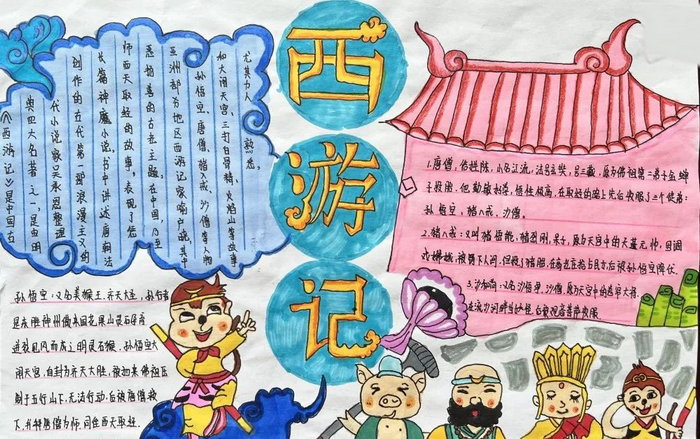 西游记
《西游记》是中国古
典四大名著之一，是由明
代小说家吴承恩整理
创作的古代第一部浪漫主义的
长篇神魔小说，书中讲述唐朝法
师西天取经的故事，表现了惩
恶扬善的古老主题，在中国，乃至
亚洲部分地区西游记家喻户晓，其中
孙悟空，唐僧，猪八戒，沙僧等人物
和大闹天宫，三打白骨精，火焰山等故事
尤其为人熟悉。
1.唐僧，俗姓陈，小名江流，法号玄奘，号三藏，原为佛祖第二弟子金蝉
子投胎，但勤敏好学，悟性极高，在取经的路上先后收服了三个徒弟：
孙悟空，猪八戒，沙僧。
2.猪八戒：又叫猪悟能，猪刚鬣，呆子，原为天宫中的天蓬元帅，因调
戏嫦娥，被贬下人间，
3.沙和尚：又名沙悟净，沙僧，原为天宫中的卷帘大将，
在流沙河畔当妖怪，
孙悟空：又名美猴王，齐天大圣，孙行者
是东胜神州傲来国花果山灵石孕育
迸裂见风而成之明灵石猴，孙悟空大
闹天宫，自封为齐天大圣，被如来佛祖压
制于五行山下，无法行动，后被唐僧救
下，并拜唐僧为师，同往西天取经。